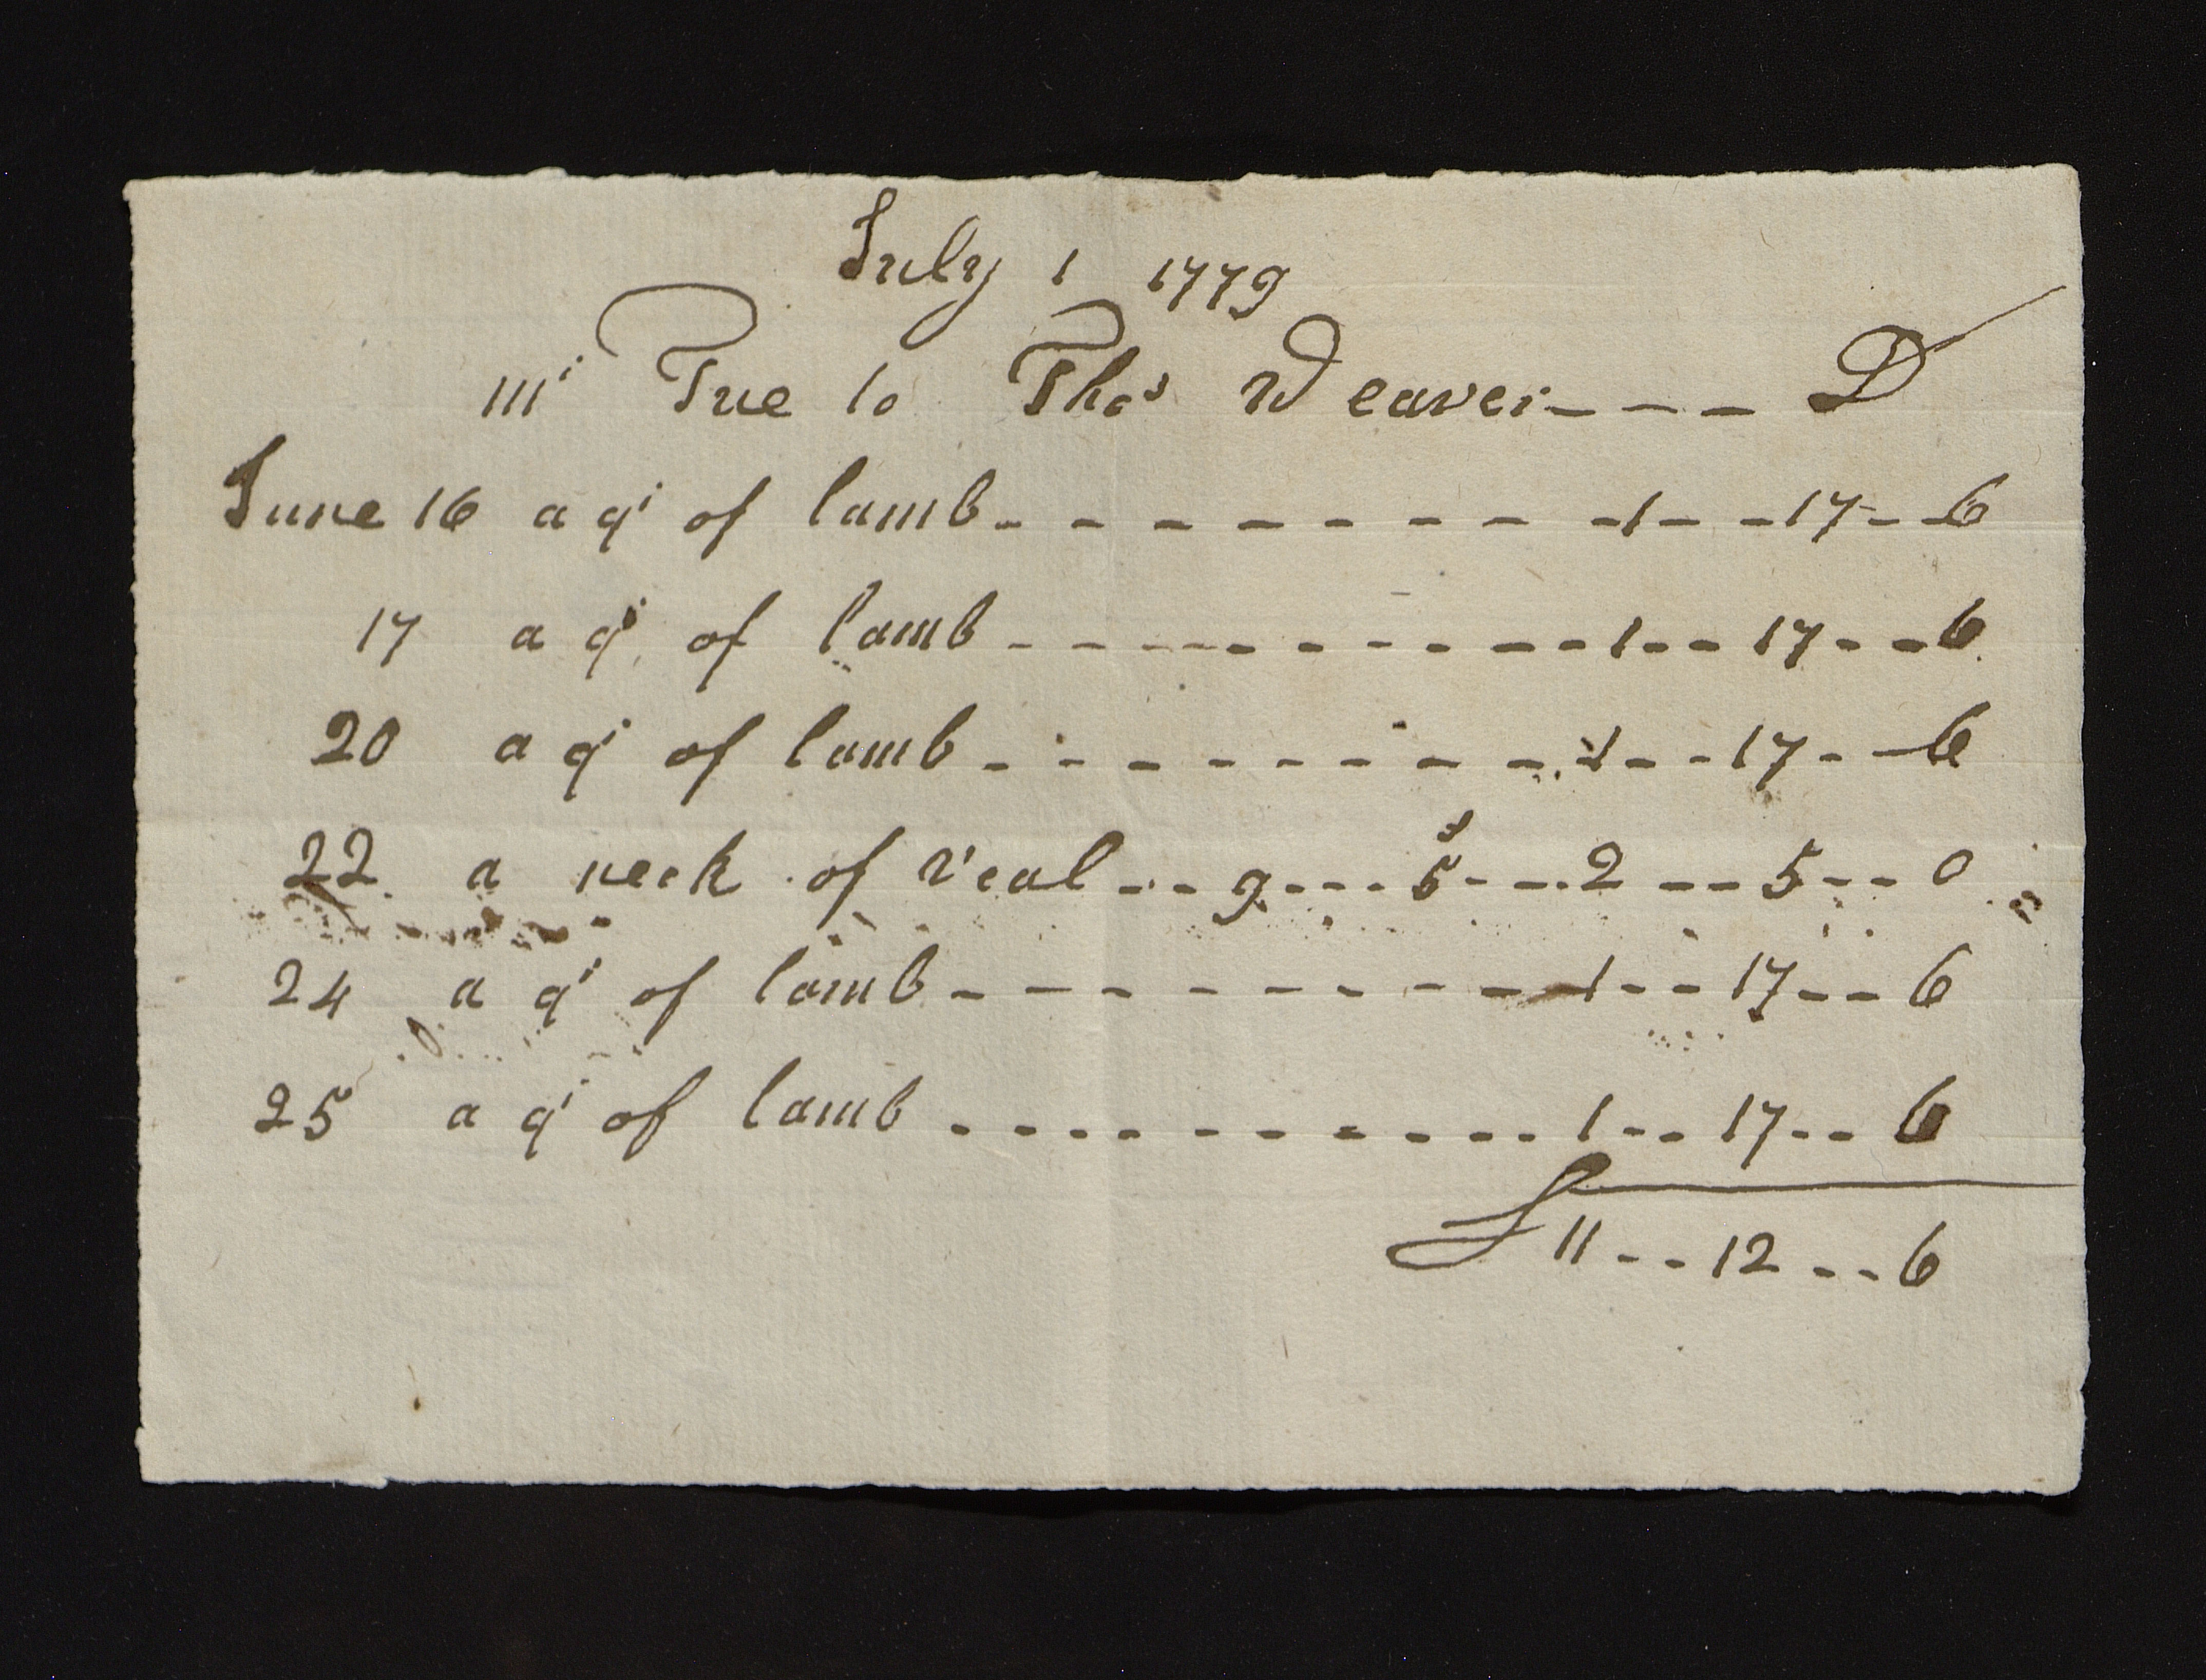 July 1 1779
mr Tue to Thos Weaver - - - D
June 16 a qr of lamb - - - - - - - - 1 - - 17 - - 6
17 a qr of lamb - - - - - - - - - - 1 - - 17 - - 6
20 a qr of lamb - - - - - - - - 1 - - 17 - - 6
22 a neck of veal - - 9 - - - 5s - - - 2 - - 5 - - 0
24 a qr of lamb - - - - - - - - - 1 - - 17 - - 6
25 a qr of lamb - - - - - - - - - - 1 - - 17 - - 6
£ 11 - - 12 - - 6